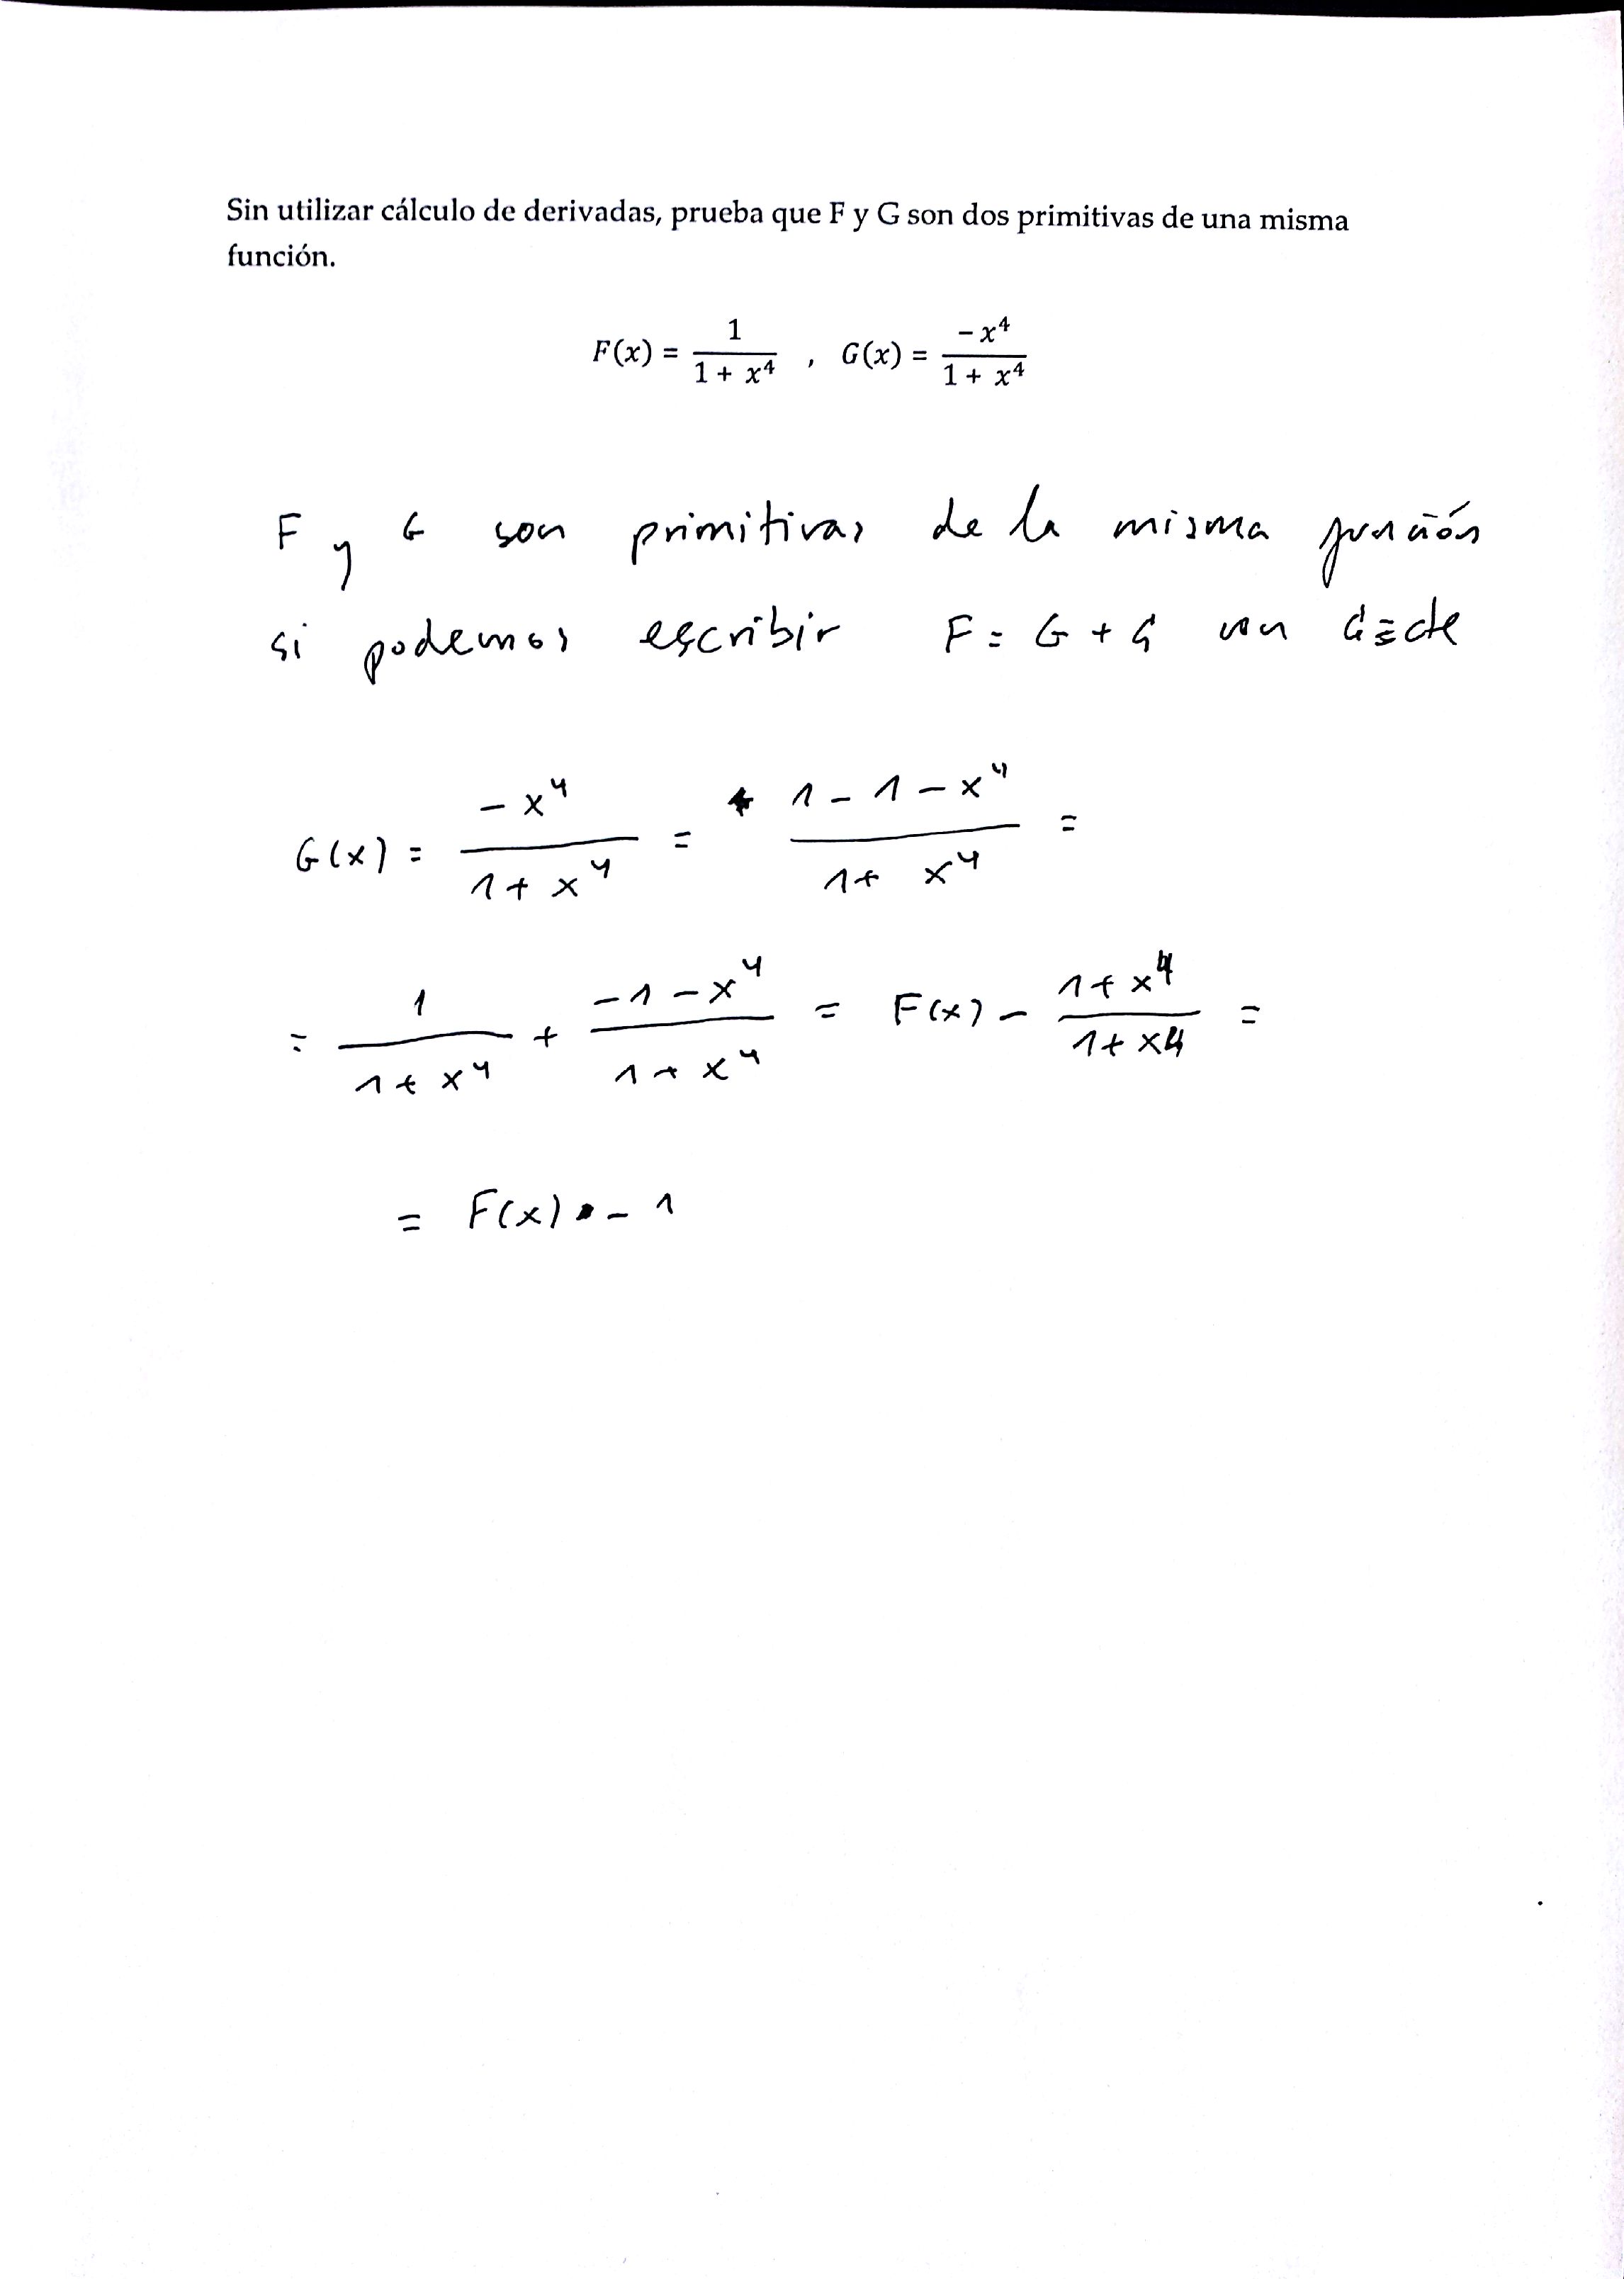 Sin utilizar cálculo de derivadas, prueba que F y G son dos primitivas de una misma
función.
F(x) = 1/(1 + x⁴) , G(x) = −x⁴/(1 + x⁴)
F y G son primitivas de la misma función
si podemos escribir F = G + G con G ≡ cte
G(x) = −x⁴/(1 + x⁴) = (1 − 1 − x⁴)/(1 + x⁴) =
= 1/(1 + x⁴) + (−1 − x⁴)/(1 + x⁴) = F(x) − (1 + x⁴)/(1 + x4) =
= F(x) − 1